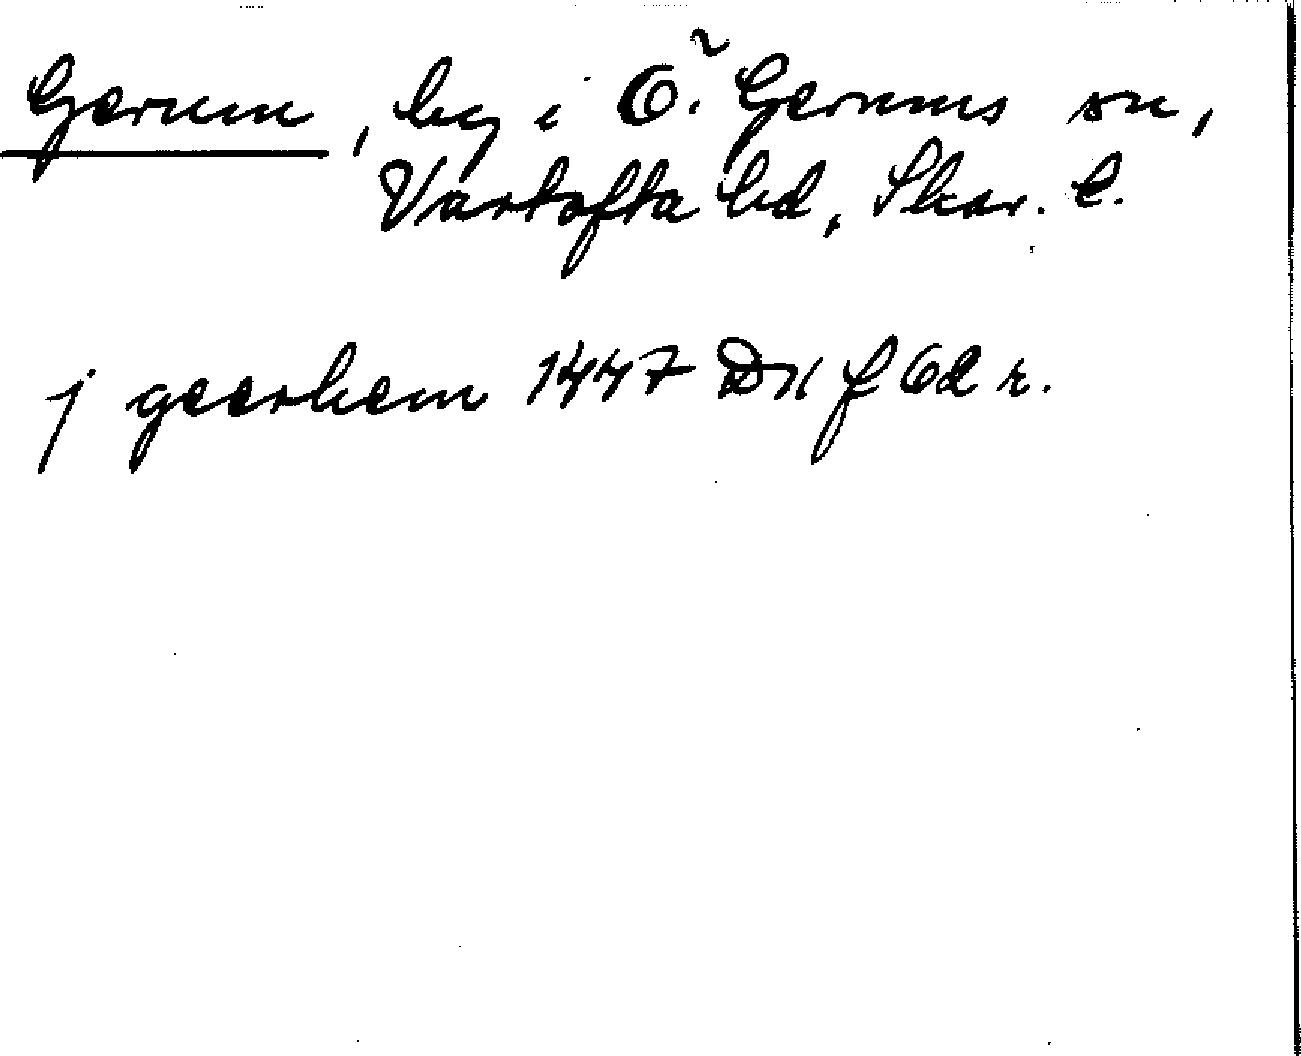 Gerum, by i Ö. Gerums sn,
Vartofta hd, Skar. l.
j geerhem 1447 Dn f 62 r.